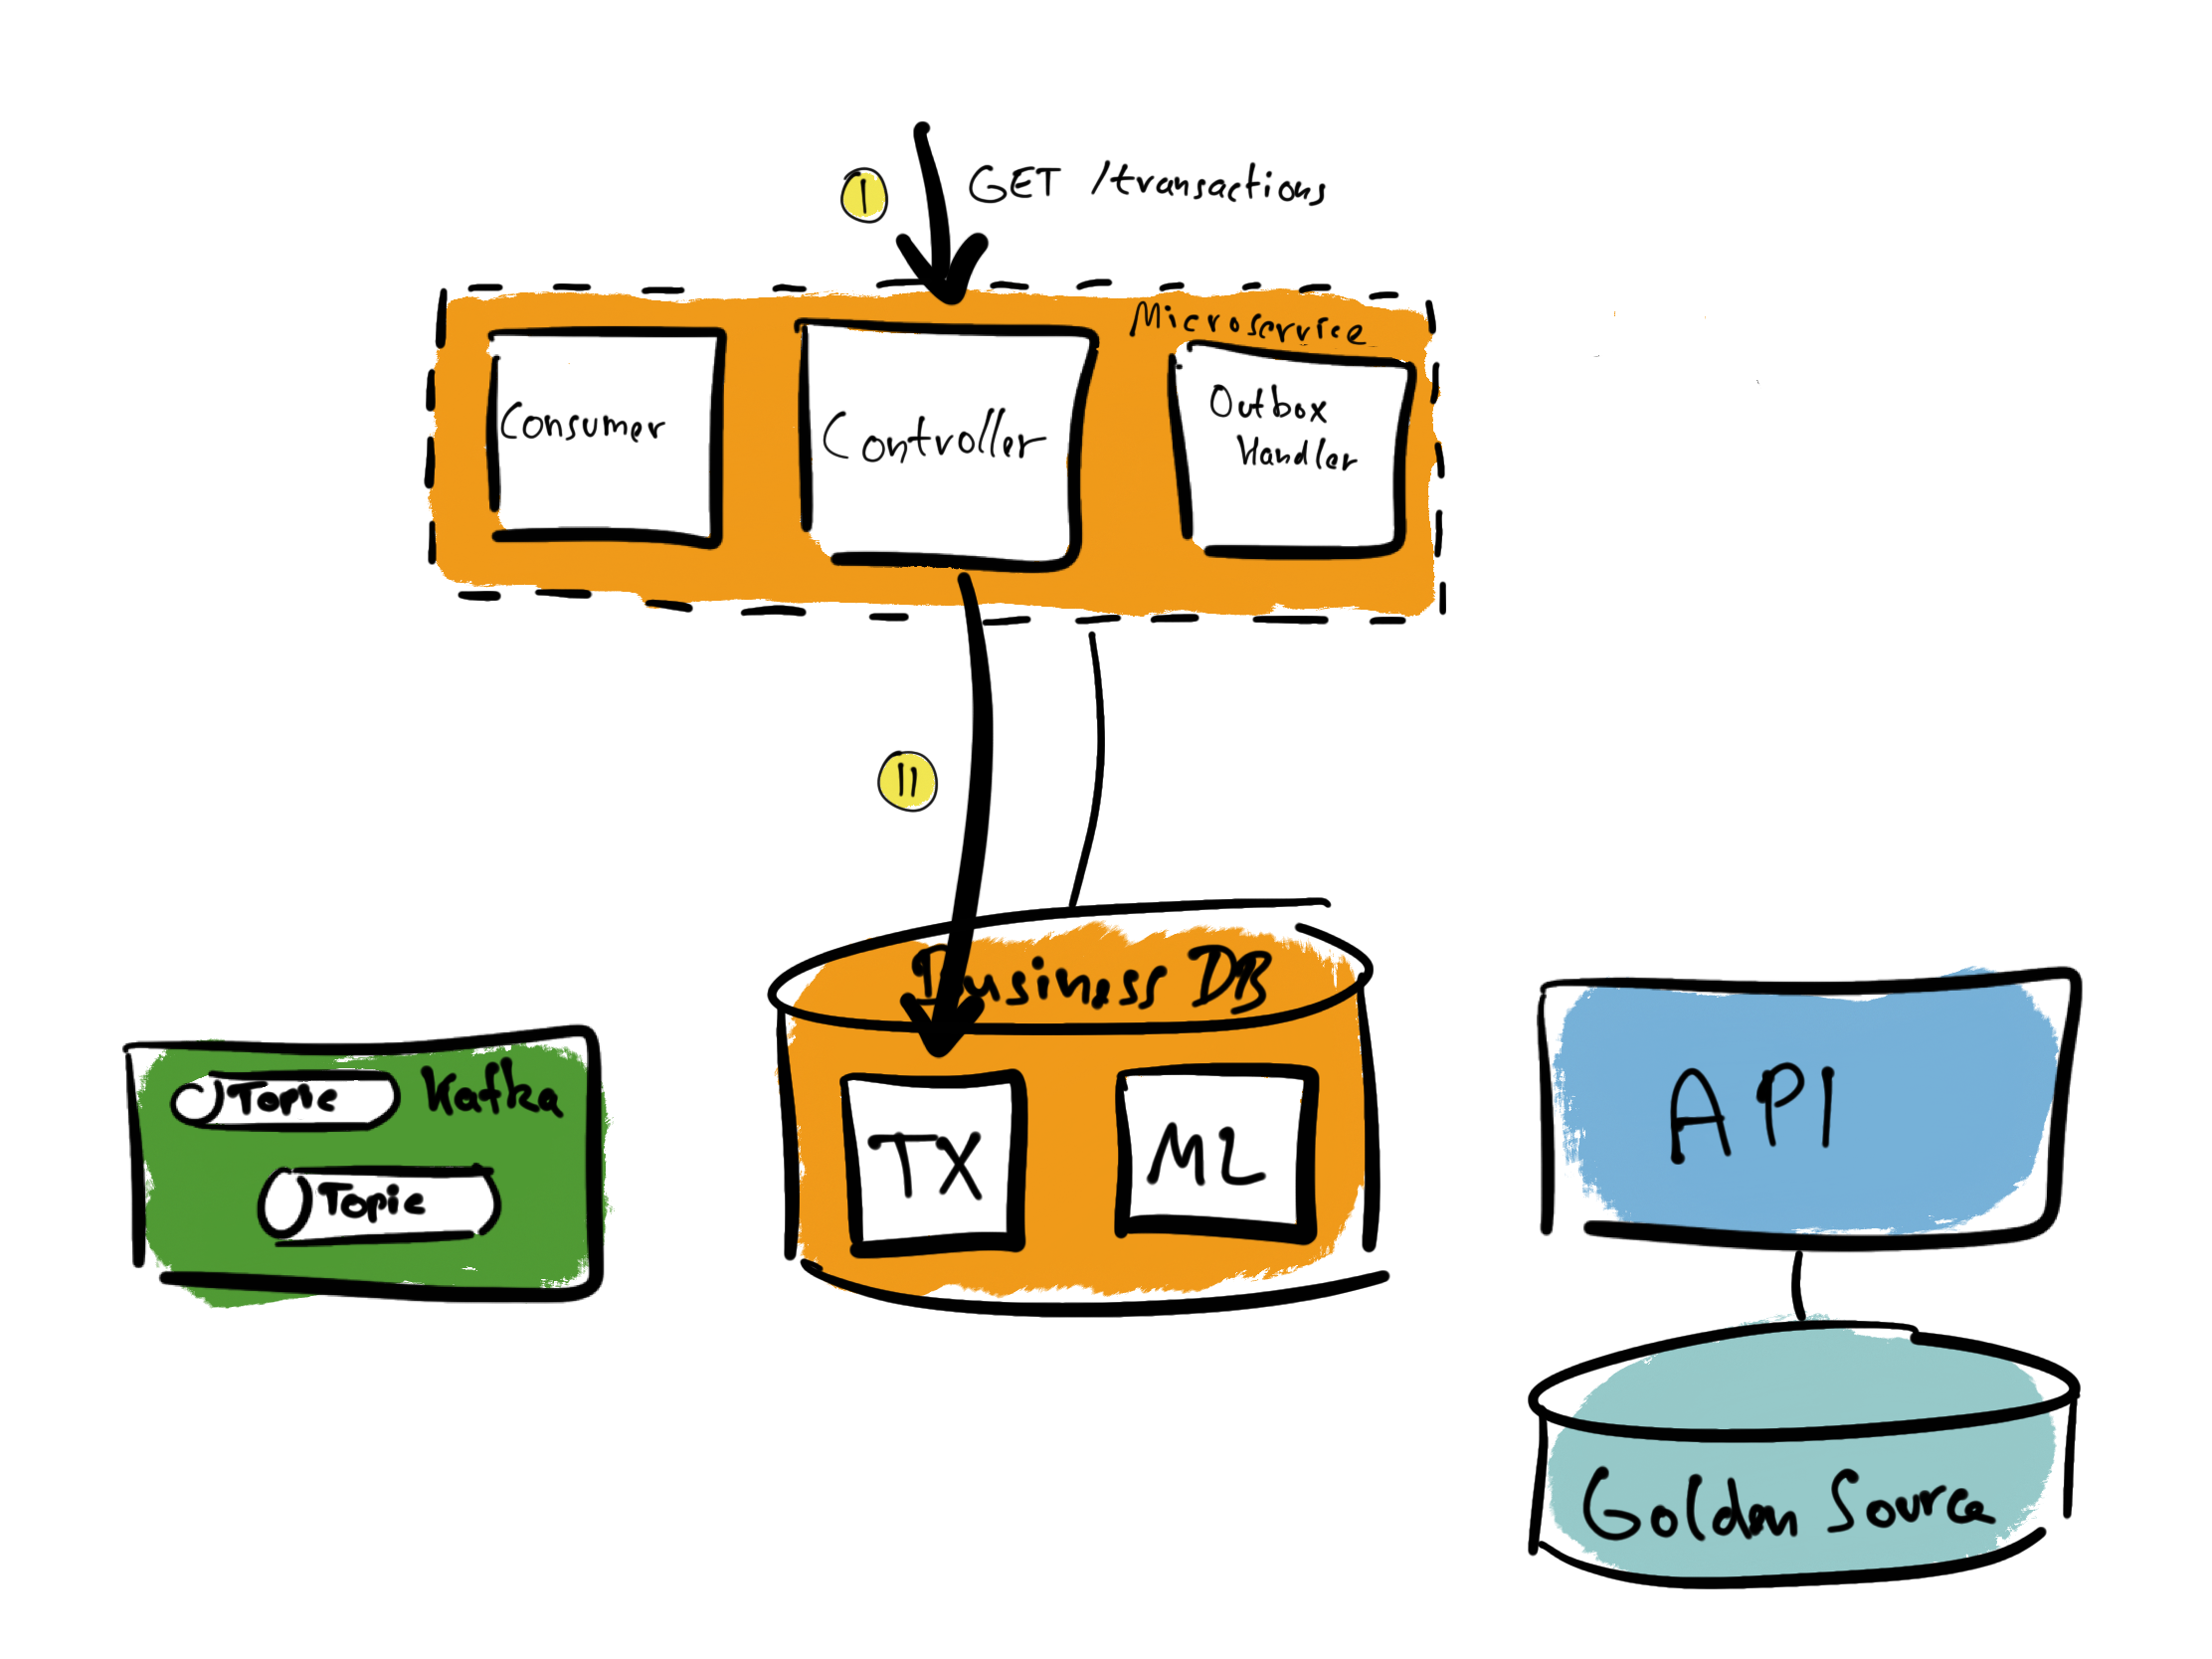 I
GET /transactions
Microservice
Consumer
Controller
Outbox
Handler
II
Business DB
TX
ML
Topic
Kafka
Topic
API
Golden Source